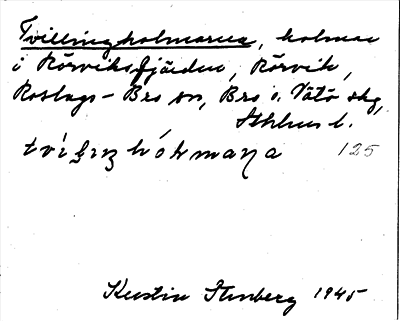 Tvillingholmarna, holmar
i Rörviksfjärden, Rörvik,
Roslags-Bro sn, Bro o. Vätö skg,
Sthlms l.
125
Kerstin Stenberg 1945